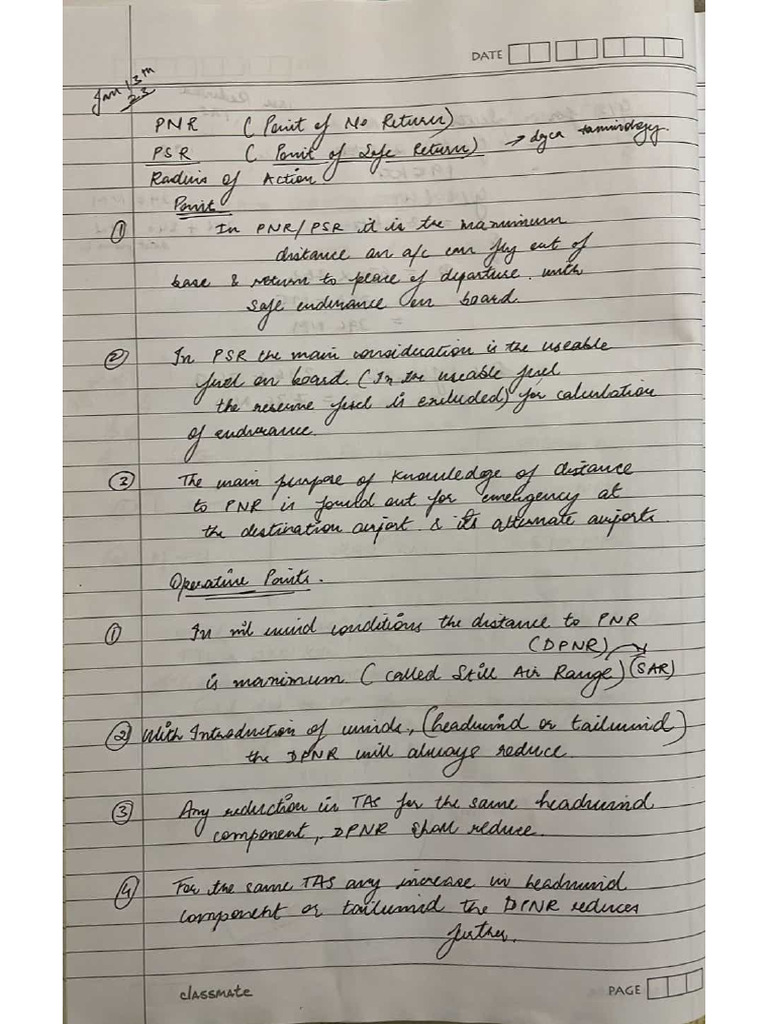 DATE
Jan 13th
23
PNR (Point of No Return)
PSR (Point of Safe Return) → dgca terminology.
Radius of Action
Point
① In PNR/PSR it is the maximum
distance an a/c can fly out of
base & return to place of departure with
safe endurance on board.
② In PSR the main consideration is the useable
fuel on board. (In the useable fuel
the reserve fuel is excluded) for calculation
of endurance.
③ The main purpose of knowledge of distance
to PNR is found out for emergency at
the destination airport & its alternate airports.
Operative Points.
① In nil wind conditions the distance to PNR
(DPNR)
is maximum. (called Still Air Range) (SAR)
② With Introduction of winds, (headwind or tailwind)
the DPNR will always reduce.
③ Any reduction in TAS for the same headwind
component, DPNR shall reduce.
④ For the same TAS any increase in headwind
component or tailwind the DPNR reduces
further.
classmate
PAGE